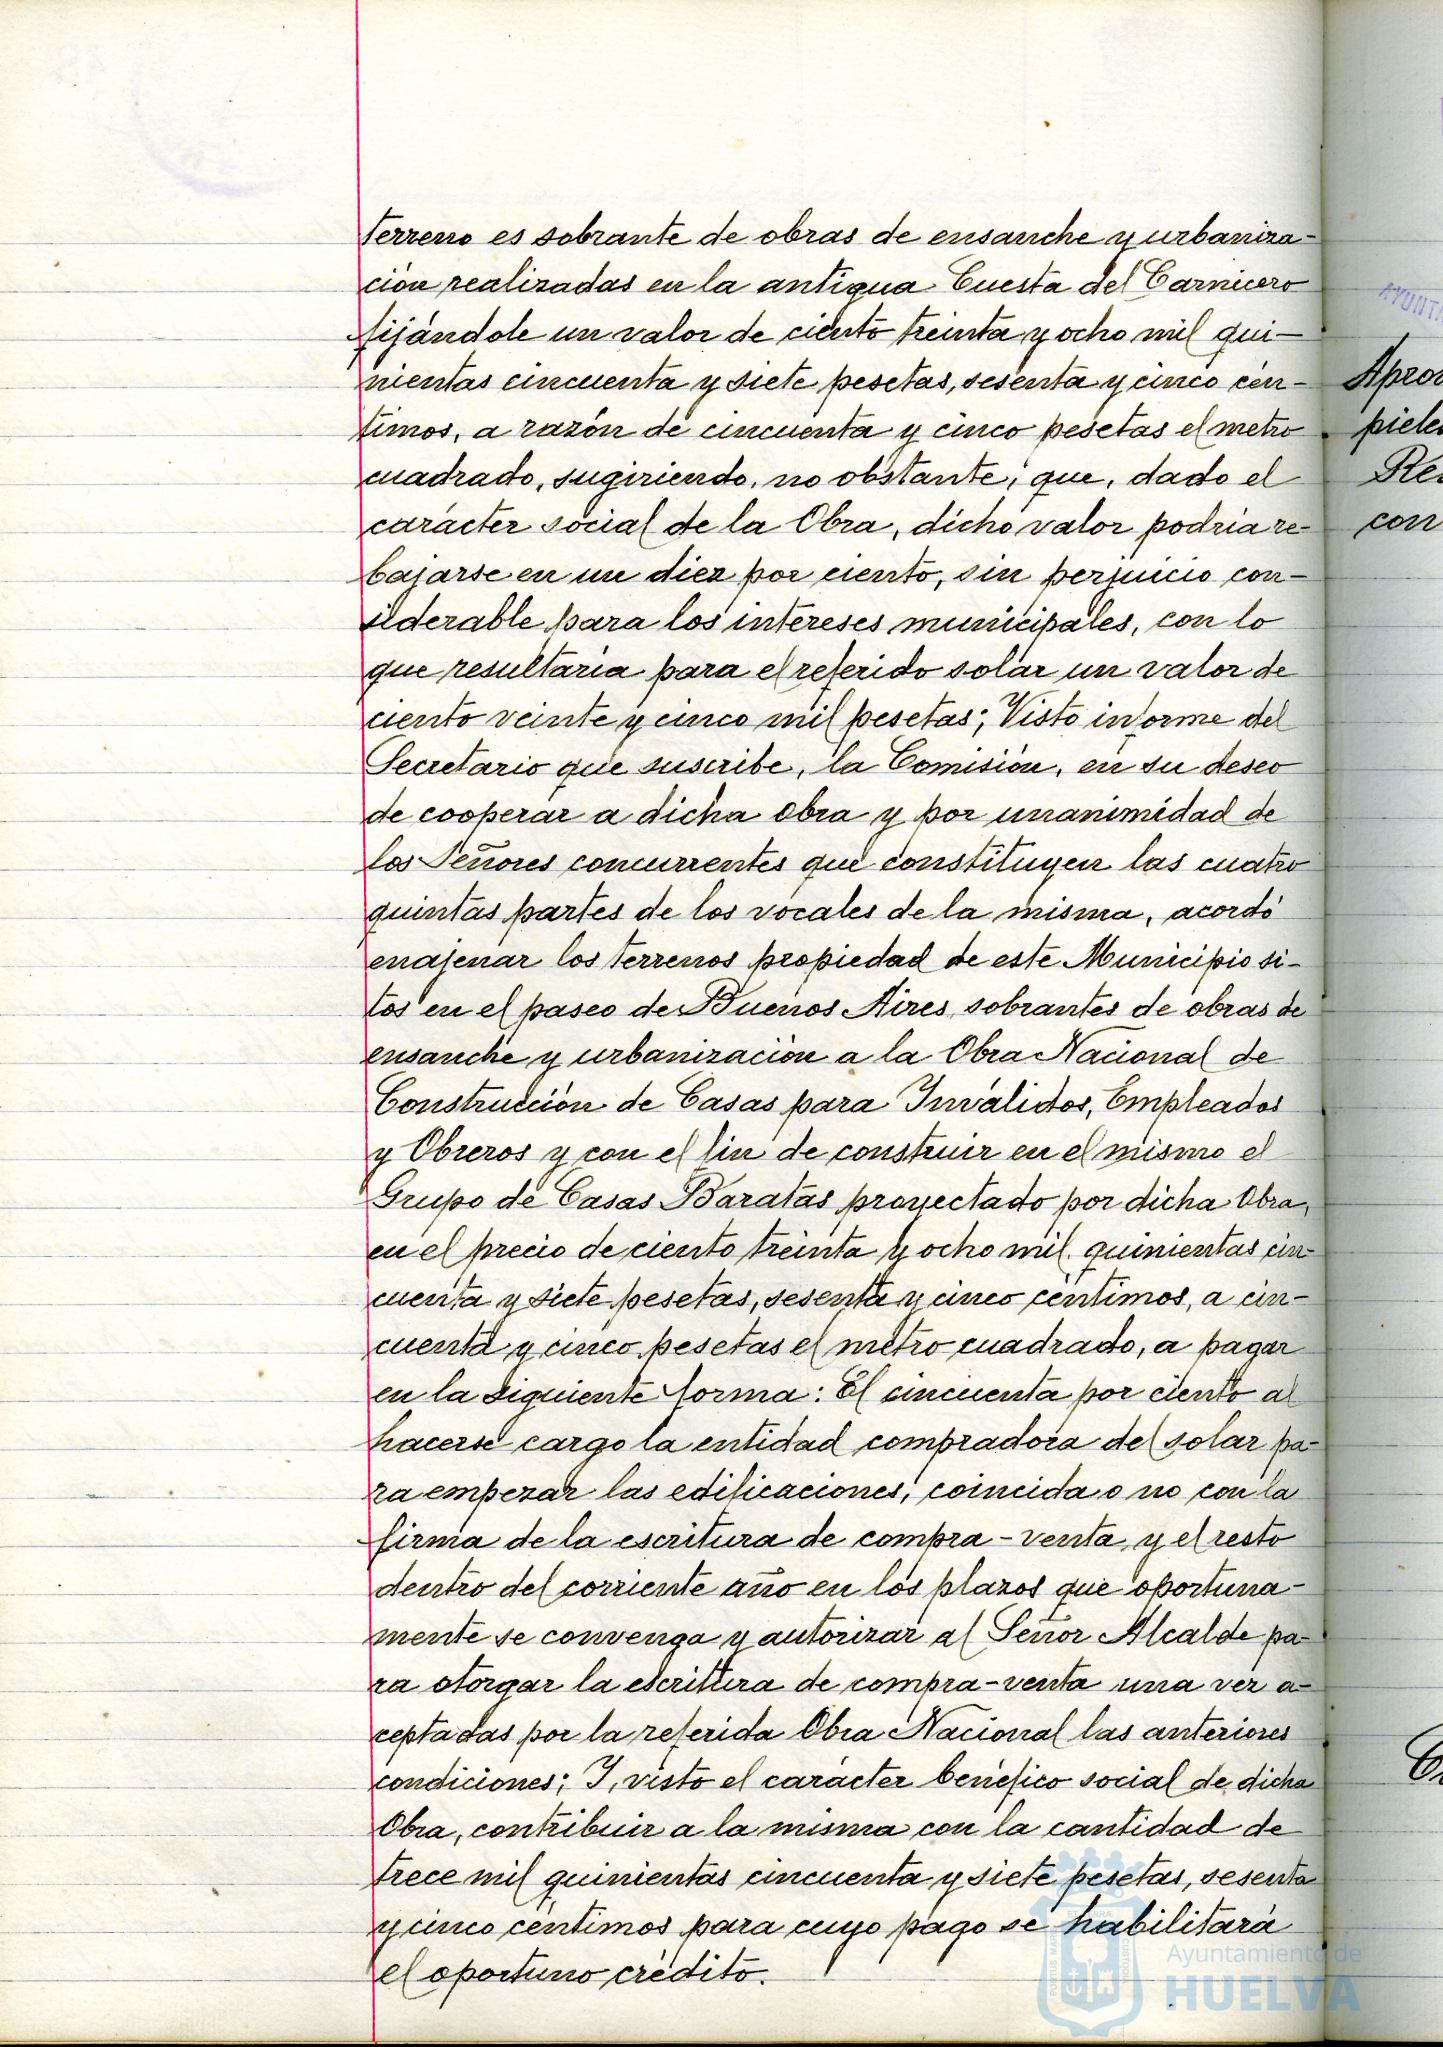 terreno es sobrante de obras de ensanche y urbaniza-
ción realizadas en la antigua Cuesta del Carnicero
fijándole un valor de ciento treinta y ocho mil qui-
nientas cincuenta y siete pesetas, sesenta y cinco cén-
timos, a razón de cincuenta y cinco pesetas el metro
cuadrado, sugiriendo, no obstante, que, dado el
carácter social de la Obra, dicho valor podría re-
bajarse en un diez por ciento, sin perjuicio con-
siderable para los intereses municipales, con lo
que resultaría para el referido solar un valor de
ciento veinte y cinco mil pesetas; Visto informe del
Secretario que suscribe, la Comisión, en su deseo
de cooperar a dicha obra y por unanimidad de
los Señores concurrentes que constituyen las cuatro
quintas partes de los vocales de la misma, acordó
enajenar los terrenos propiedad de este Municipio si-
tos en el paseo de Buenos Aires, sobrantes de obras de
ensanche y urbanización a la Obra Nacional de
Construcción de Casas para Inválidos, Empleados
y Obreros y con el fin de construir en el mismo el
Grupo de Casas Baratas proyectado por dicha Obra,
en el precio de ciento treinta y ocho mil quinientas cin-
cuenta y siete pesetas, sesenta y cinco céntimos, a cin-
cuenta y cinco pesetas el metro cuadrado, a pagar
en la siguiente forma: El cincuenta por ciento al
hacerse cargo la entidad compradora del solar pa-
ra empezar las edificaciones, coincida o no con la
firma de la escritura de compra-venta, y el resto
dentro del corriente año en los plazos que oportuna-
mente se convenga y autorizar al Señor Alcalde pa-
ra otorgar la escritura de compra-venta una vez a-
ceptadas por la referida Obra Nacional las anteriores
condiciones; Y, visto el carácter benéfico social de dicha
Obra, contribuir a la misma con la cantidad de
trece mil quinientas cincuenta y siete pesetas, sesenta
y cinco céntimos para cuyo pago se habilitará
el oportuno crédito.
Ayuntamiento de
HUELVA
con